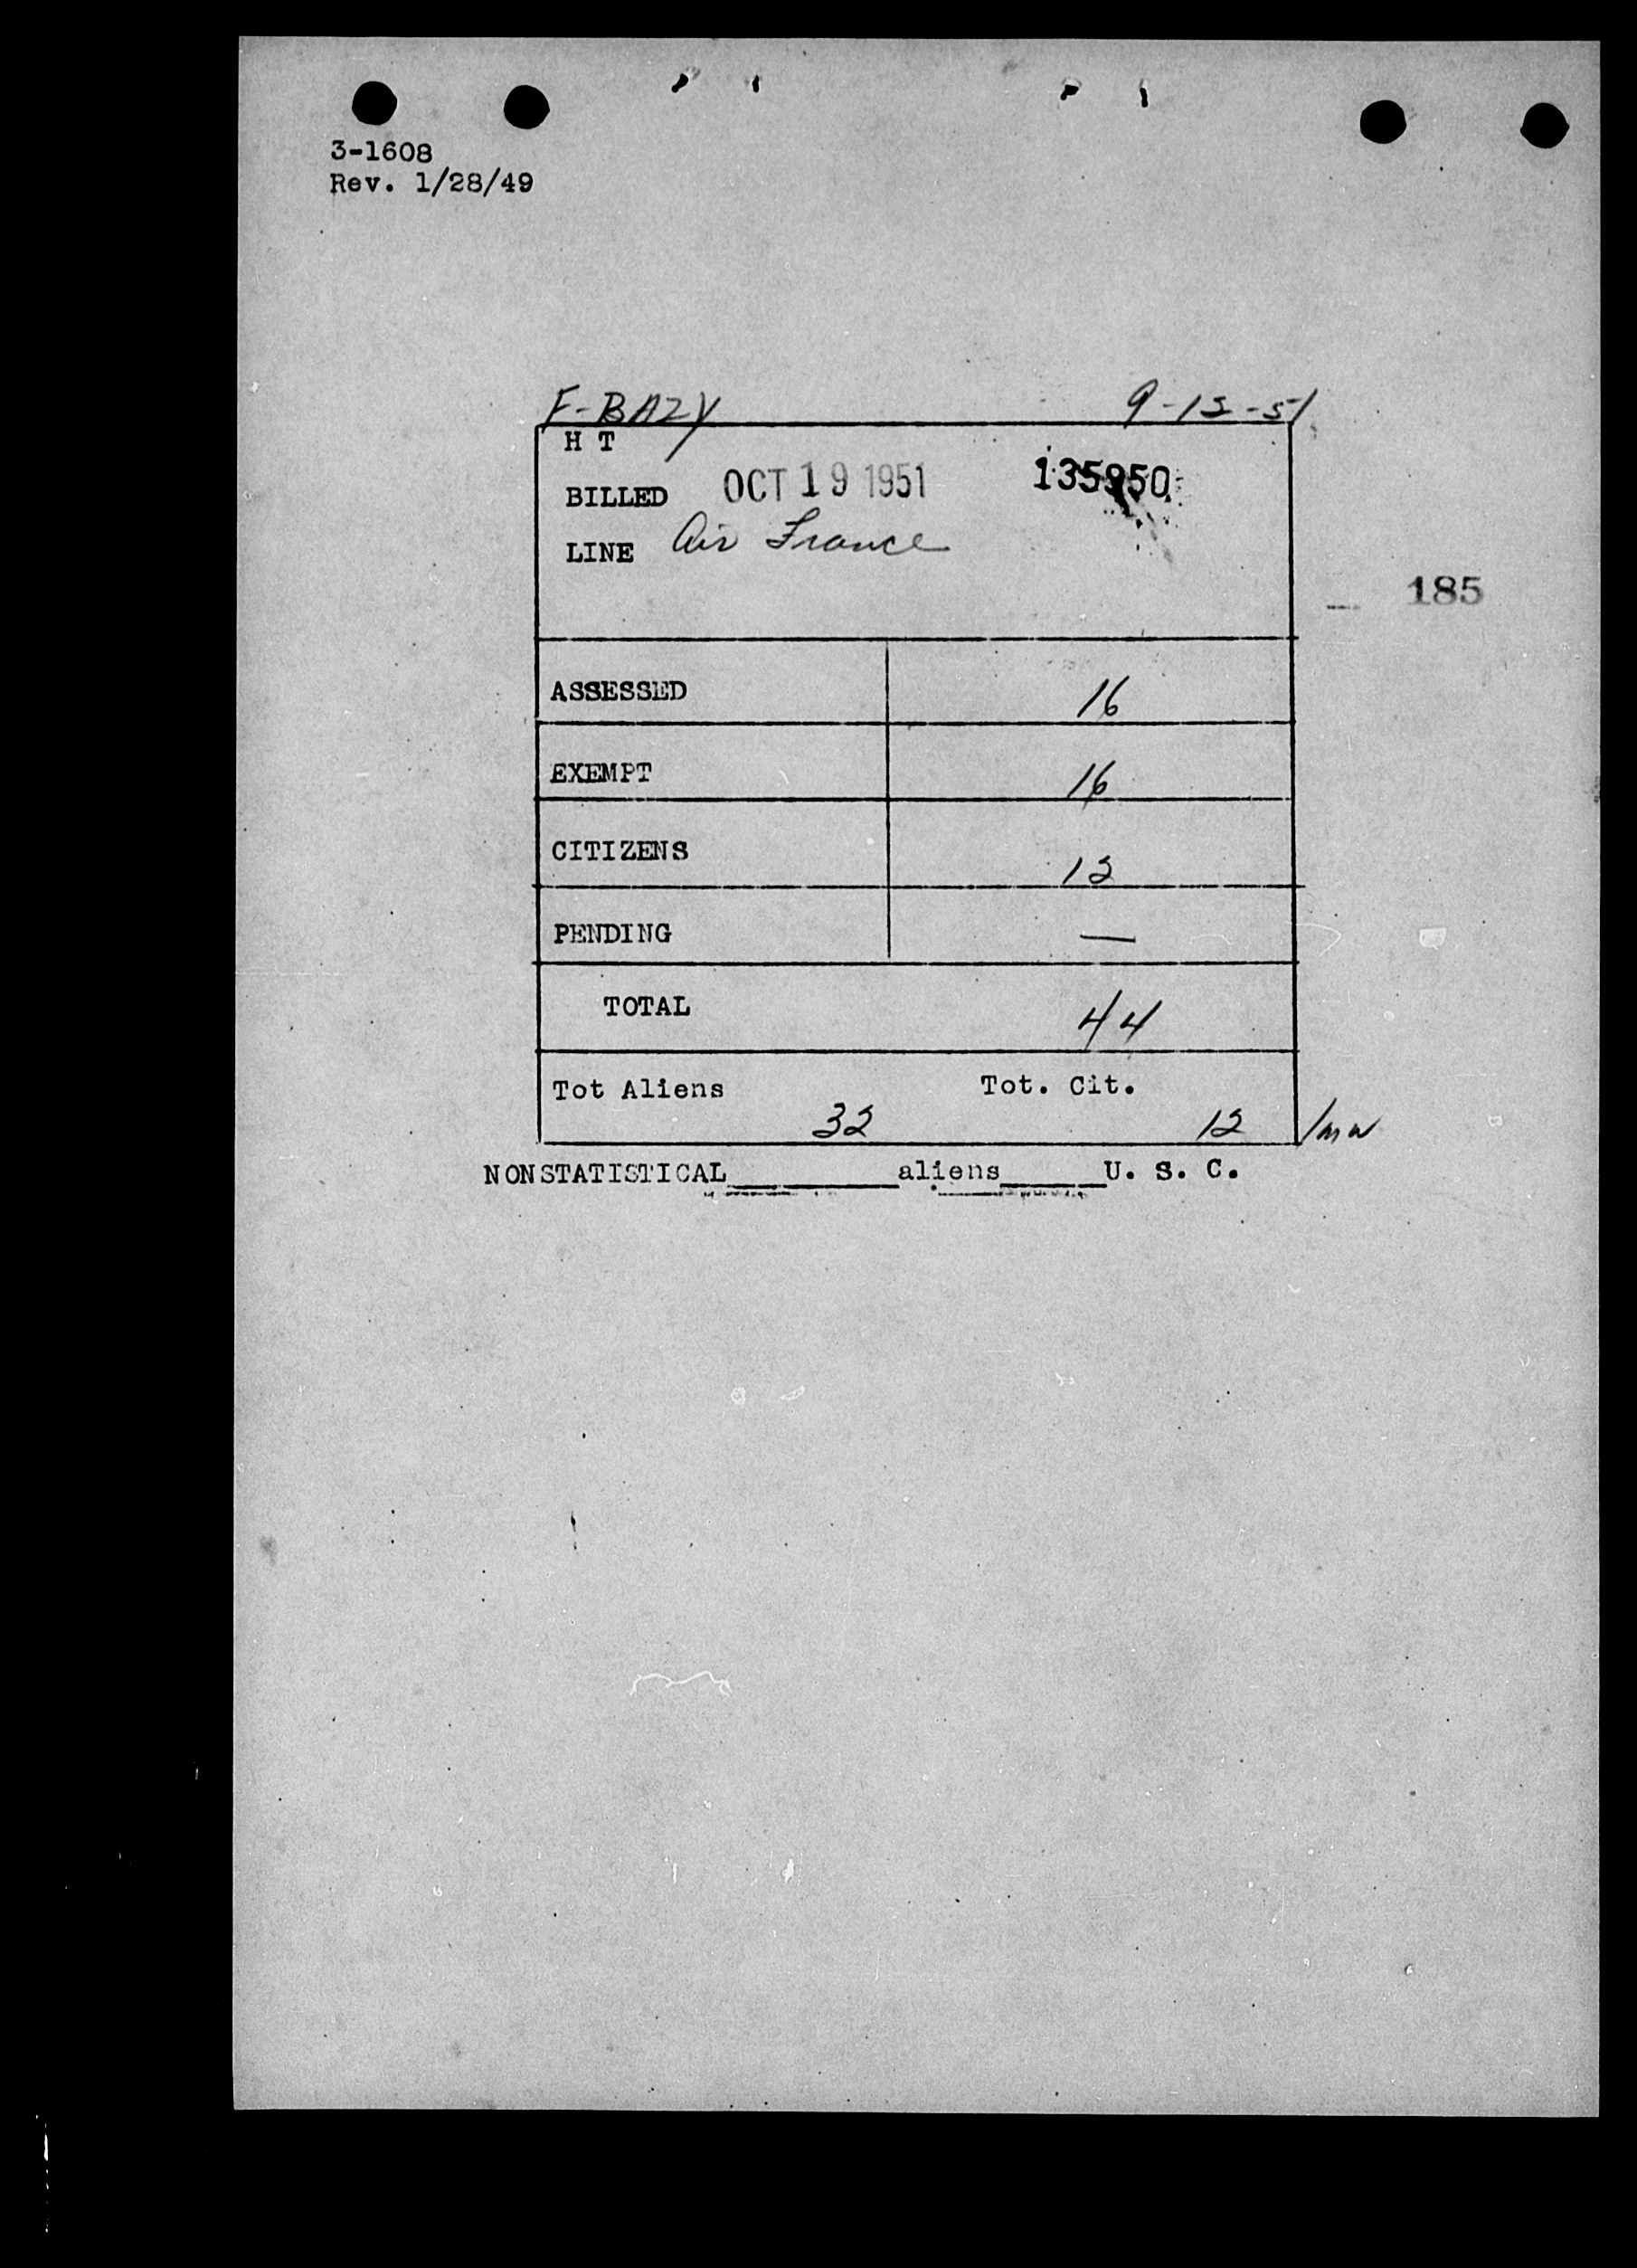 3-1608
Rev. 1/28/49
F-BAZY 9-12-51
H T
BILLED OCT 19 1951 135950
LINE Air France
185
ASSESSED 16
EXEMPT 16
CITIZENS 12
PENDING —
TOTAL 44
Tot Aliens Tot. Cit.
32 12 /mw
NONSTATISTICAL________aliens_____U. S. C.